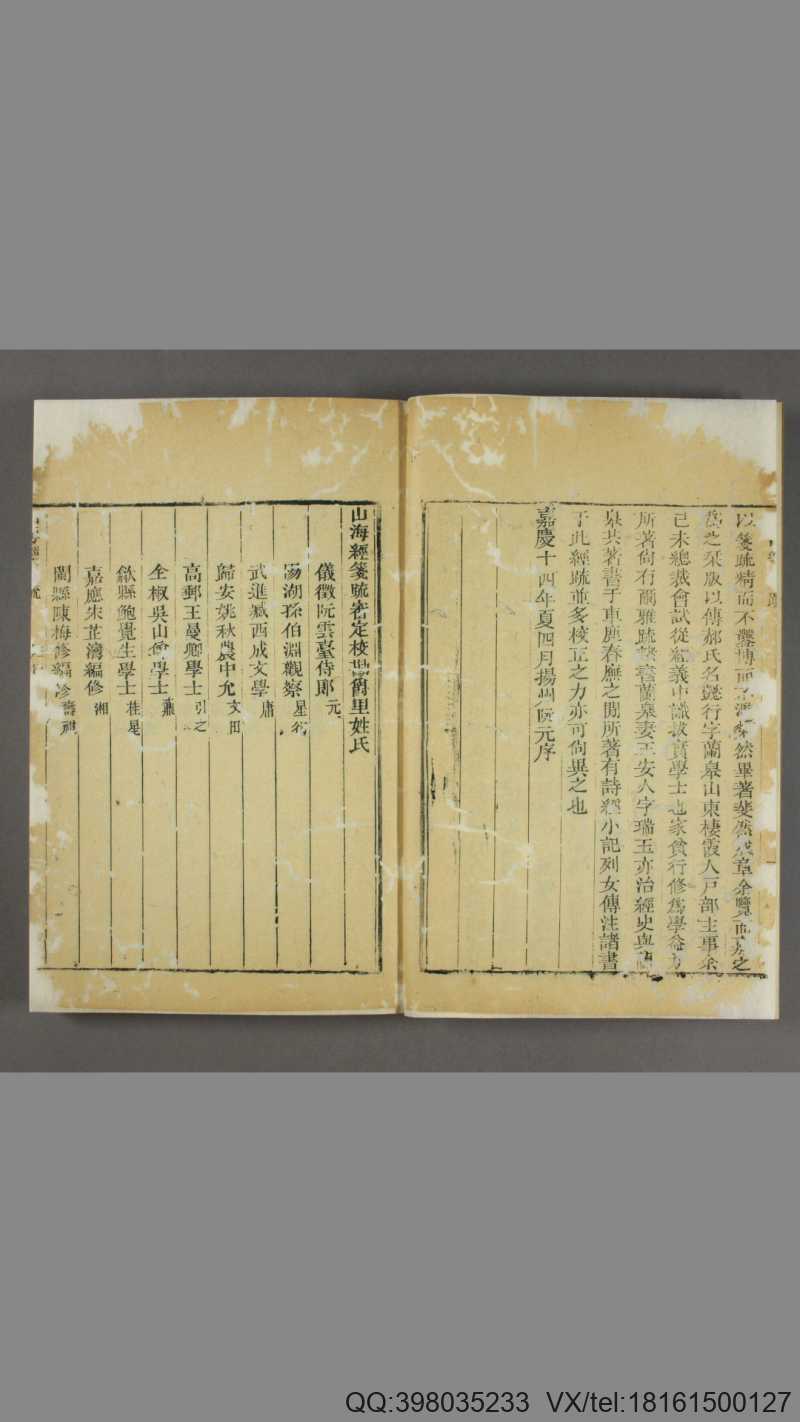 以箋疏精而不鑿博而不濫粲然畢著斐然成章余覽而嘉之
為之栞版以傳郝氏名懿行字蘭皋山東棲霞人戶部主事余
己未總裁會試從經義中識拔實學士也家貧行修爲學益力
所著尚有爾雅疏諸書蘭皋妻王安人字瑞玉亦治經史與蘭
皋共著書于車鹿春廡之閒所著有詩經小記列女傳注諸書
于此經疏並多校正之力亦可尙異之也
嘉慶十四年夏四月揚州阮元序
山海經箋疏審定校勘爵里姓氏
儀徵阮雲臺侍郎元
陽湖孫伯淵觀察星衍
武進臧西成文學庸
歸安姚秋農中允文田
高郵王曼卿學士引之
全椒吳山尊學士鼒
歙縣鮑覺生學士桂星
嘉應宋芷灣編修湘
閩縣陳梅修編修壽祺
QQ:398035233 VX/tel:18161500127